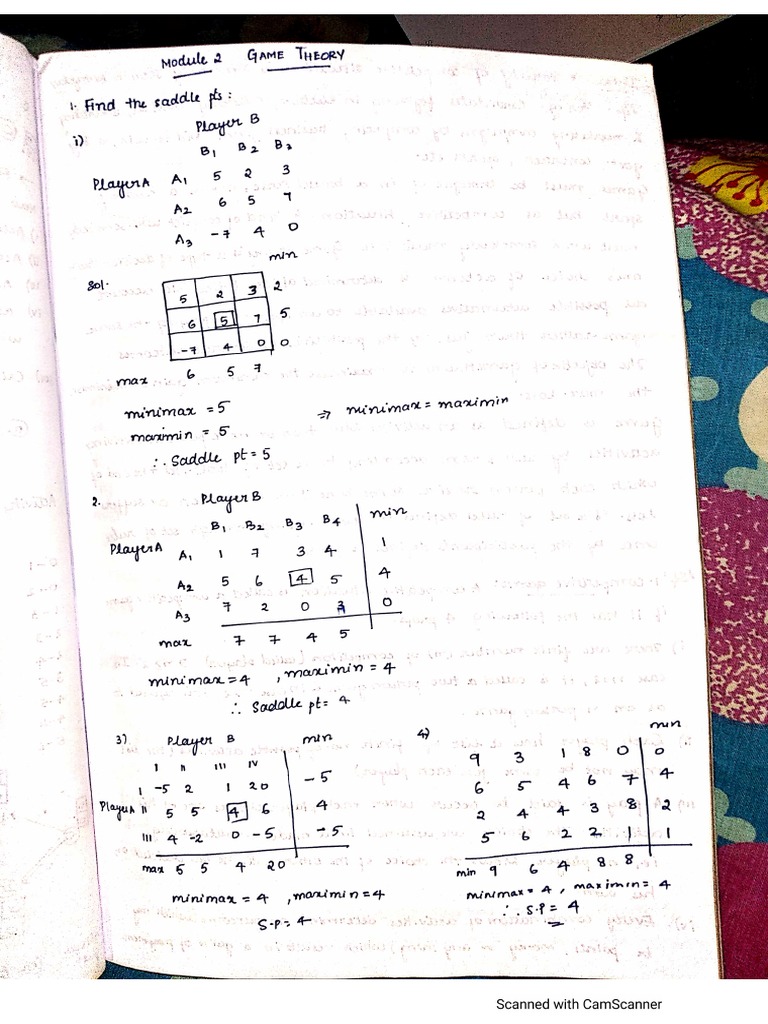 Module 2 GAME THEORY
1. Find the saddle pts:
i) Player B
B1 B2 B3
Player A A1 5 2 3
A2 6 5 7
A3 -7 4 0
Sol. min
5 2 3 2
-6 5 7 5
-7 4 0 0
max 6 5 7
minimax = 5 ⇒ minimax = maximin
maximin = 5
∴ Saddle pt = 5
2. Player B
B1 B2 B3 B4 min
Player A A1 1 7 3 4 1
A2 5 6 4 5 4
A3 7 2 0 3 0
max 7 7 4 5
minimax = 4 , maximin = 4
∴ Saddle pt = 4
3) Player B min
I II III IV
I -5 2 1 20 -5
Player A II 5 5 4 6 4
III 4 -2 0 -5 -5
max 5 5 4 20
minimax = 4 , maximin = 4
S.P = 4
4) min
9 3 1 8 0 0
6 5 4 6 7 4
2 4 4 3 8 2
5 6 2 2 1 1
min 9 6 4 8 8
minimax = 4 , maximin = 4
∴ S.P = 4
Scanned with CamScanner